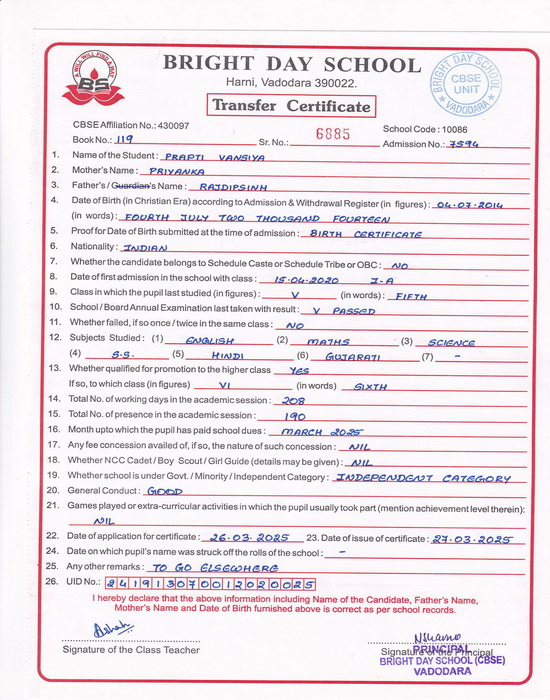 A WILL WILL FIND A WAY
BS
BRIGHT DAY SCHOOL
Harni, Vadodara 390022.
Transfer Certificate
BRIGHT DAY SCHOOL
CBSE
UNIT
VADODARA
CBSE Affiliation No.: 430097
School Code : 10086
Book No.: 119 Sr. No.: 6885 Admission No.: 7594
1. Name of the Student : PRAPTI VANSIYA
2. Mother's Name : PRIYANKA
3. Father's / Guardian's Name : RAJDIPSINH
4. Date of Birth (in Christian Era) according to Admission & Withdrawal Register (in figures) : 04.07.2014
(in words) : FOURTH JULY TWO THOUSAND FOURTEEN
5. Proof for Date of Birth submitted at the time of admission : BIRTH CERTIFICATE
6. Nationality : INDIAN
7. Whether the candidate belongs to Schedule Caste or Schedule Tribe or OBC : NO
8. Date of first admission in the school with class : 15.04.2020 I-A
9. Class in which the pupil last studied (in figures) : V (in words) : FIFTH
10. School / Board Annual Examination last taken with result : V PASSED
11. Whether failed, if so once / twice in the same class : NO
12. Subjects Studied : (1) ENGLISH (2) MATHS (3) SCIENCE
(4) S.S. (5) HINDI (6) GUJARATI (7) -
13. Whether qualified for promotion to the higher class YES
If so, to which class (in figures) VI (in words) SIXTH
14. Total No. of working days in the academic session : 208
15. Total No. of presence in the academic session : 190
16. Month upto which the pupil has paid school dues : MARCH 2025
17. Any fee concession availed of, if so, the nature of such concession : NIL
18. Whether NCC Cadet / Boy Scout / Girl Guide (details may be given) : NIL
19. Whether school is under Govt. / Minority / Independent Category : INDEPENDENT CATEGORY
20. General Conduct : GOOD
21. Games played or extra-curricular activities in which the pupil usually took part (mention achievement level therein) :
NIL
22. Date of application for certificate : 26.03.2025 23. Date of issue of certificate : 27.03.2025
24. Date on which pupil's name was struck off the rolls of the school : -
25. Any other remarks : TO GO ELSEWHERE
26. UID No.: 241913070012020025
I hereby declare that the above information including Name of the Candidate, Father's Name,
Mother's Name and Date of Birth furnished above is correct as per school records.
Signature of the Class Teacher
Signature of the Principal
PRINCIPAL
BRIGHT DAY SCHOOL (CBSE)
VADODARA